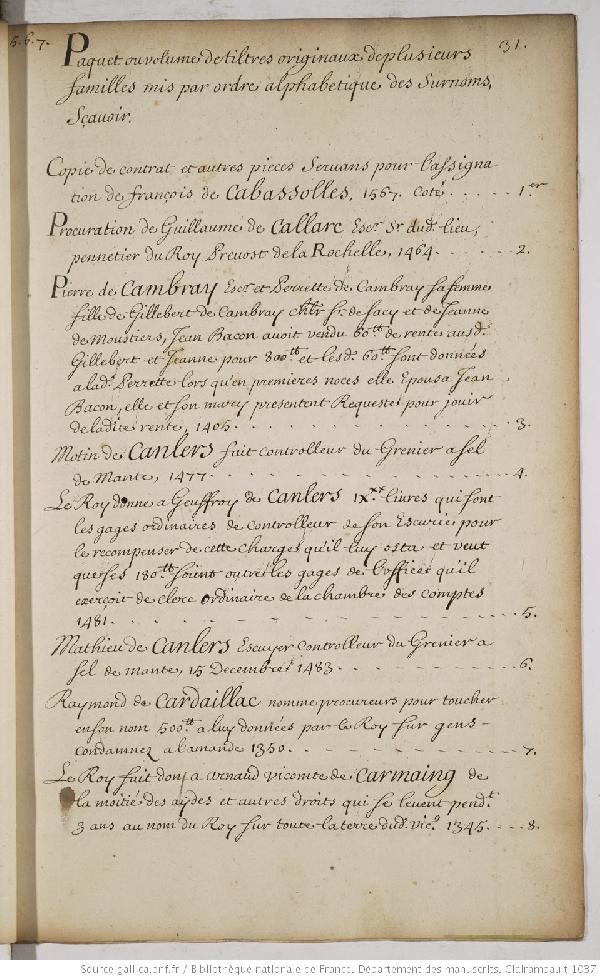 5.6.7.
31.
Paquet ou volume de tiltres originaux de plusieurs
familles mis par ordre alphabetique des Surnoms,
Sçavoir.
Copie de contrat et autres pieces Servans pour l'assigna-
tion de françois de Cabassolles, 1567. Coté ...... 1.er
Procuration de Guillaume de Callarc Escr. Sr. dud. lieu,
pennetier du Roy Prevost de la Rochelle, 1464 ...... 2.
Pierre de Cambray Escr. et Perrette de Cambray sa femme
fille de Gillebert de Cambray chlr. sr. de sacy et de Jeanne
de Moustiers, Jean Bacon avoit vendu 60.tt de rente ausd.
Gillebert et Jeanne pour 800.tt et lesd. 60.tt sont données
a lad. Perrette lors qu'en premieres noces elle Epousa Jean
Bacon, elle et son mary presentent Requeste pour jouir
de ladite rente, 1405 ...... 3.
Motin de Canlers fait controlleur du Grenier a sel
de Mante, 1477 ...... 4.
Le Roy donne a Geuffroy de Canlers livres qui sont
les gages ordinaires de controlleur de son Escurie pour
le recompenser de cette charge qu'il luy osta et veut
que ses 180.tt soint outre les gages de l'office qu'il
exerçoit de clerc ordinaire de la chambre des comptes
1481 ...... 5.
Mathieu de Canlers Escuyer Controlleur du Grenier a
sel de mante, 15 Decembre 1483 ...... 6.
Raymond de Cardaillac nomme procureurs pour toucher
en son nom 500.tt a luy données par le Roy sur gens
condamnez a l'amande 1350 ...... 7.
Le Roy fait don a arnaud vicomte de Carmaing de
la moitié des aydes et autres droits qui se levent pend.t
3 ans au nom du Roy sur toute la terre dud. vic.e 1345 .... 8.
Source gallica.bnf.fr / Bibliothèque nationale de France. Département des manuscrits. Clairambault 1037